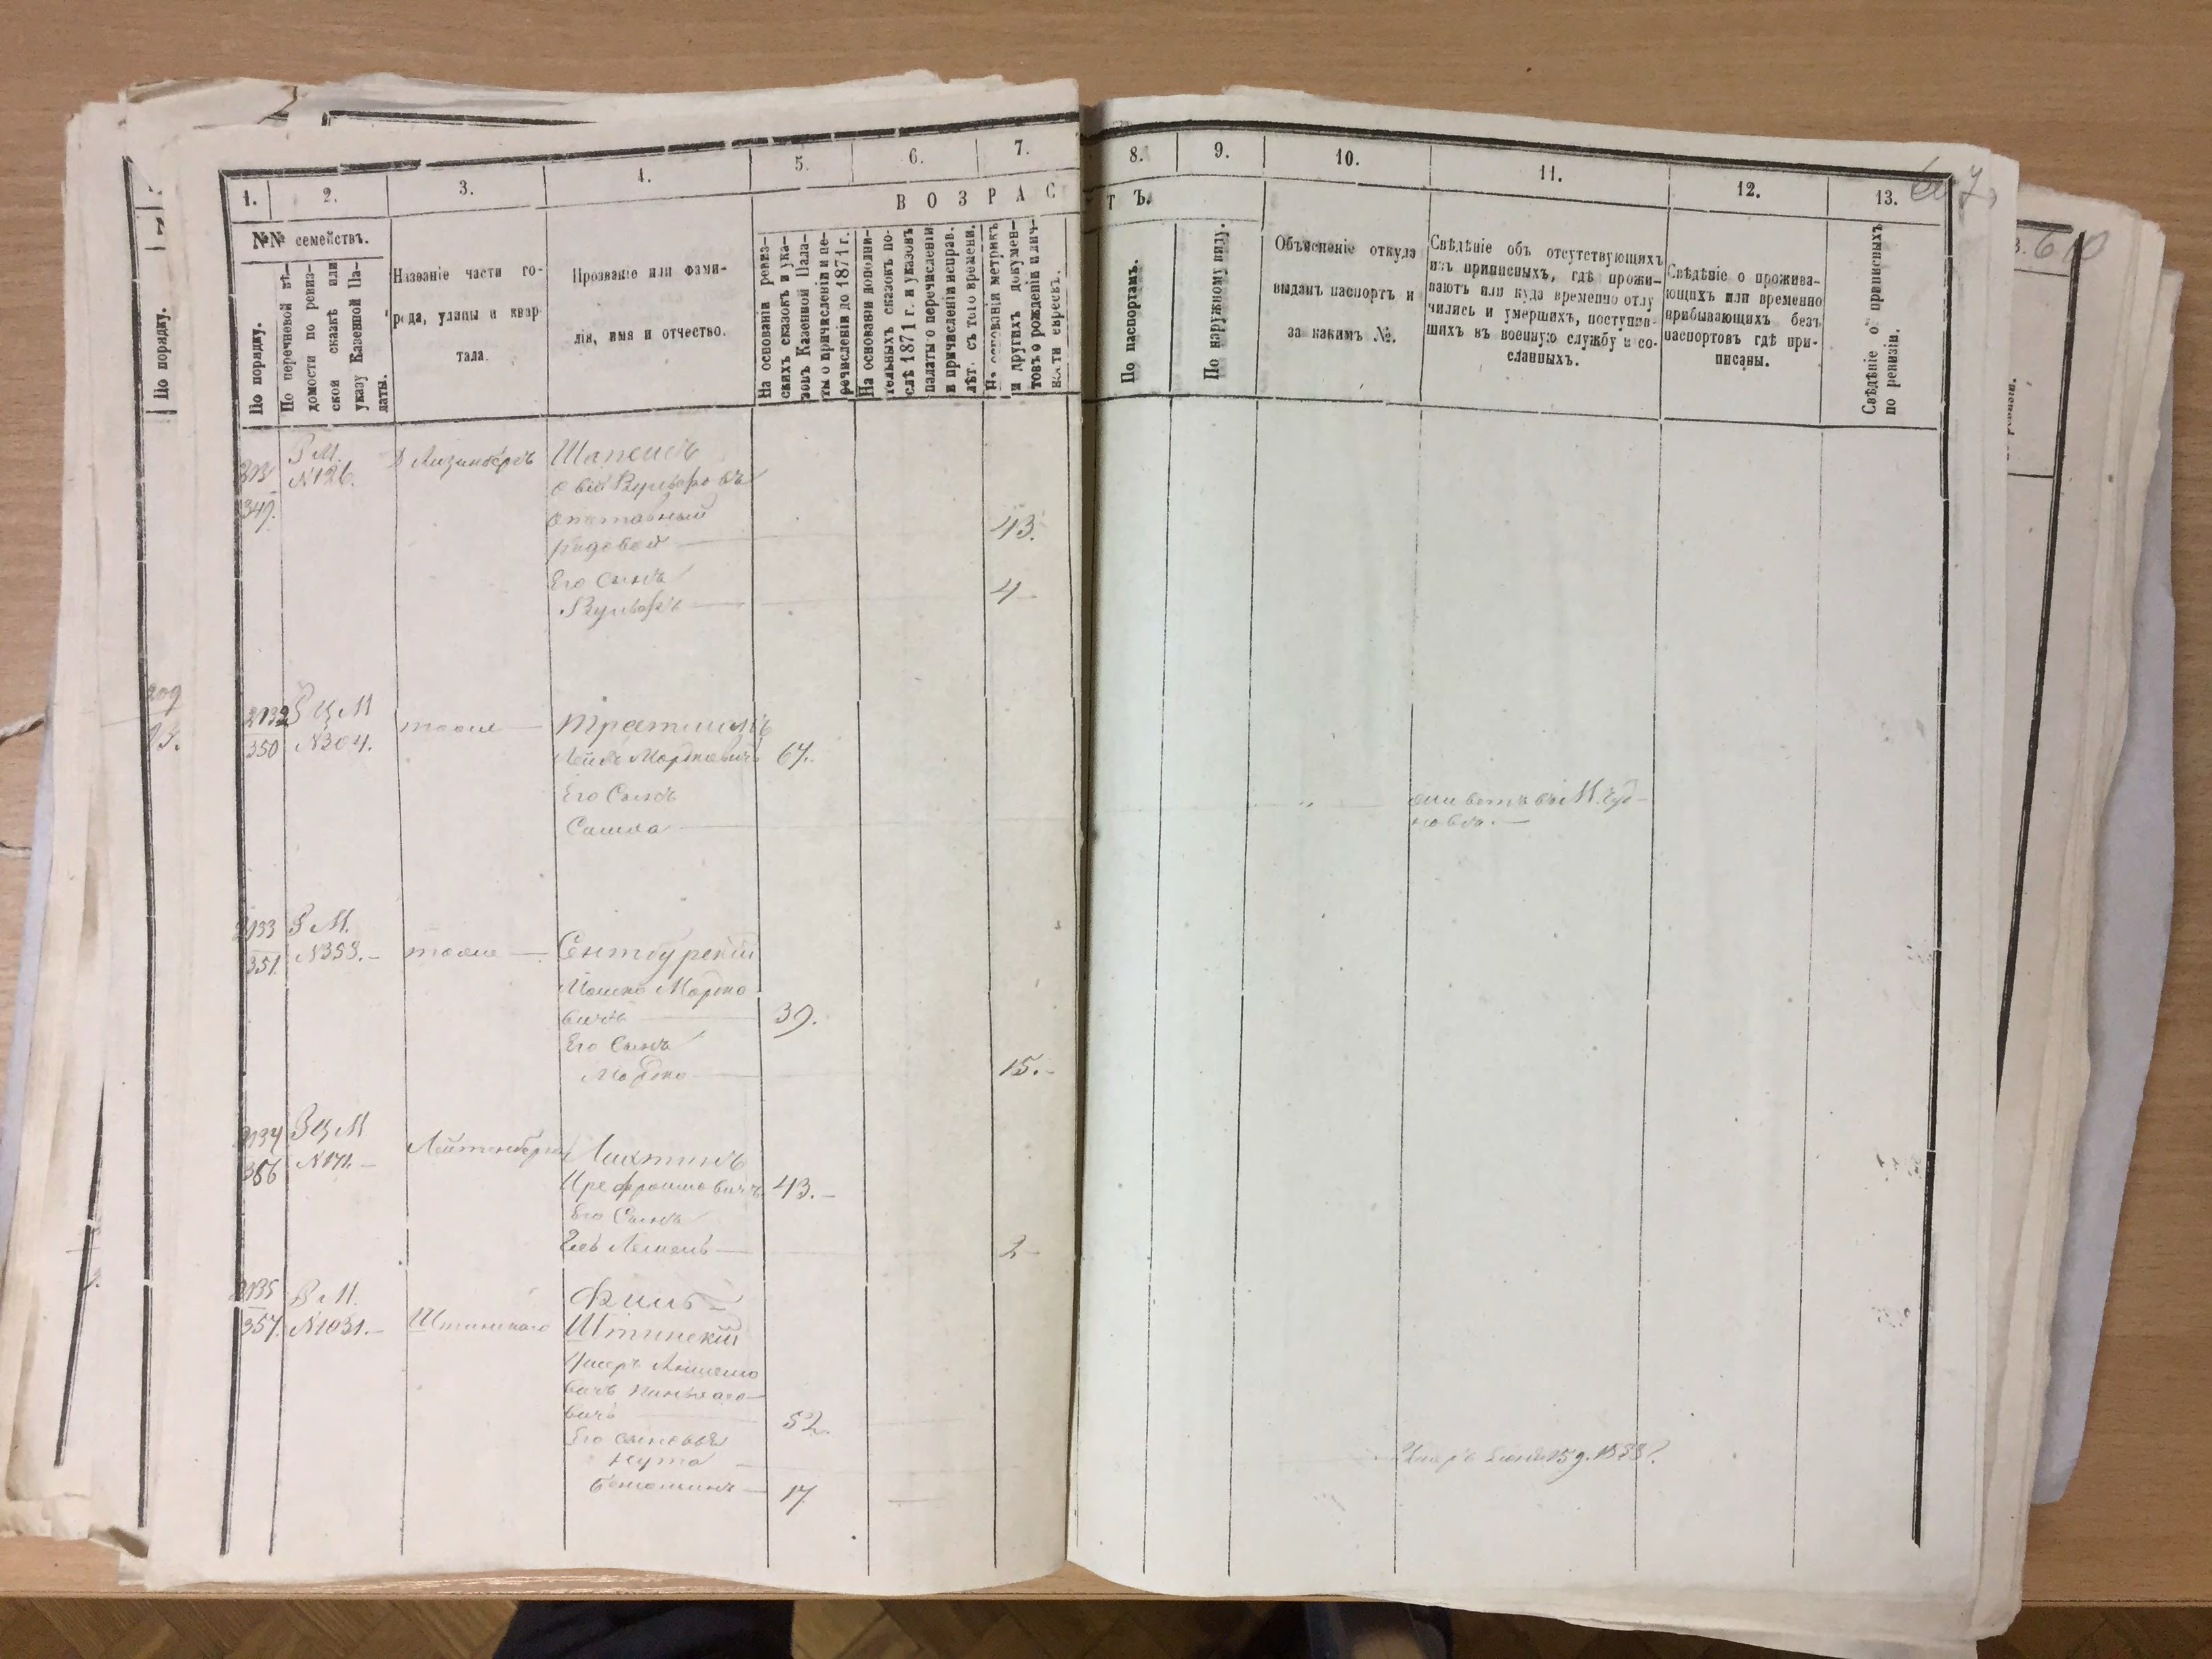 1.
2.
3.
4.
5.
6.
7.
8.
9.
10.
11.
12.
13.
607,
610
В О З Р А С
Т Ъ.
№№ семействъ.
По порядку.
По порядку.
По перечневой вѣ-
домости по ревиз-
ской сказкѣ или
указу Казенной Па-
латы.
Названіе части го-
рода, улицы и квар-
тала.
Прозваніе или фами-
лія, имя и отчество.
На основаніи ревиз-
скихъ сказокъ и ука-
зовъ Казенной Пала-
ты о причисленіи и пе-
речисленіи до 1871 г.
На основаніи дополни-
тельныхъ сказокъ по-
слѣ 1871 г. и указовъ
палаты о перечисленіи
и причисленіи исправ.
лѣт. съ того времени.
На основаніи метрикъ
и другихъ докумен-
товъ о рожденіи и лич-
ности евреевъ.
По паспортамъ.
По наружному виду.
Объясненіе откуда
выданъ паспортъ и
за какимъ №.
Свѣдѣніе объ отсутствующихъ
изъ приписныхъ, гдѣ прожи-
ваютъ или куда временно отлу
чились и умершихъ, поступив-
шихъ въ военную службу и со-
сланныхъ.
Свѣдѣніе о прожива-
ющихъ или временно
прибывающихъ безъ
паспортовъ гдѣ при-
писаны.
Свѣдѣніе о приписныхъ
по ревизіи.
349.
М.
№126.
Вульфовъ
отставный
рядовой 43.
Его Сынъ
Вульфъ 4
2132
350
№304.
тоже
Лейбъ Мордковичъ 67.
Его Сынъ
2133
351.
М.
№353.
тоже
Сентбурскій
Іошко Мордко
вичъ 39.
Его Сынъ
Мордко 15.
2134
356
№171.
Его Сынъ
2
43.
2135
357.
М.
№1031.
Штинскаго
Штинскій
вичъ 52.
Его сыновья
Нута
17